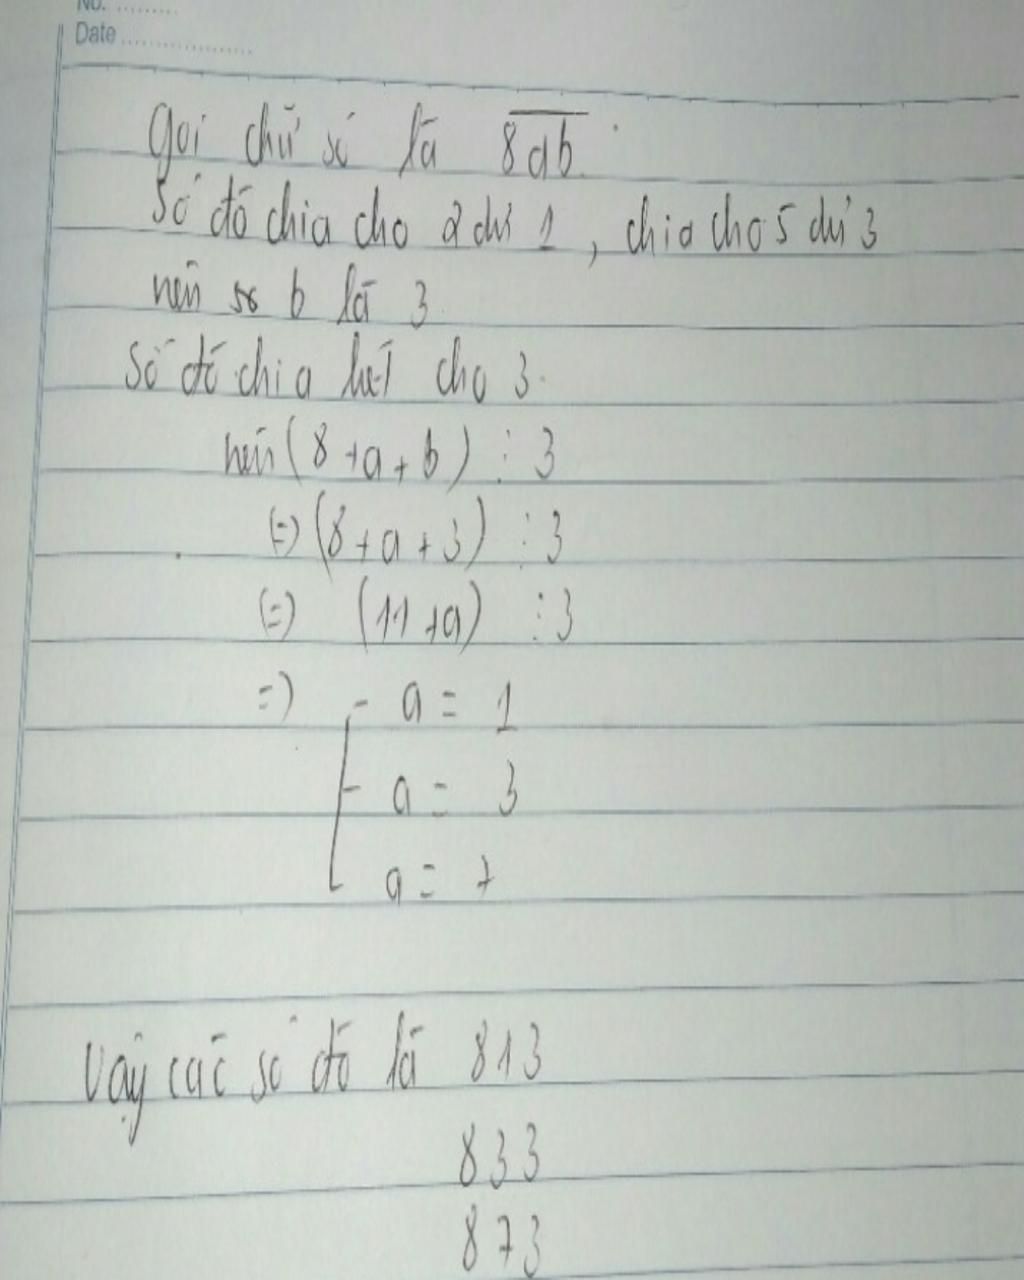 No. .........
Date ...................
gọi chữ số là 8ab
Số đó chia cho 2 dư 1 , chia cho 5 dư 3
nên số b là 3
Số đó chia hết cho 3.
nên (8 + a + b) ⋮ 3
(=) (8 + a + 3) ⋮ 3
(=) (11 + a) ⋮ 3
=) a = 1
a = 3
a = 7
Vậy các số đó là 813
833
873